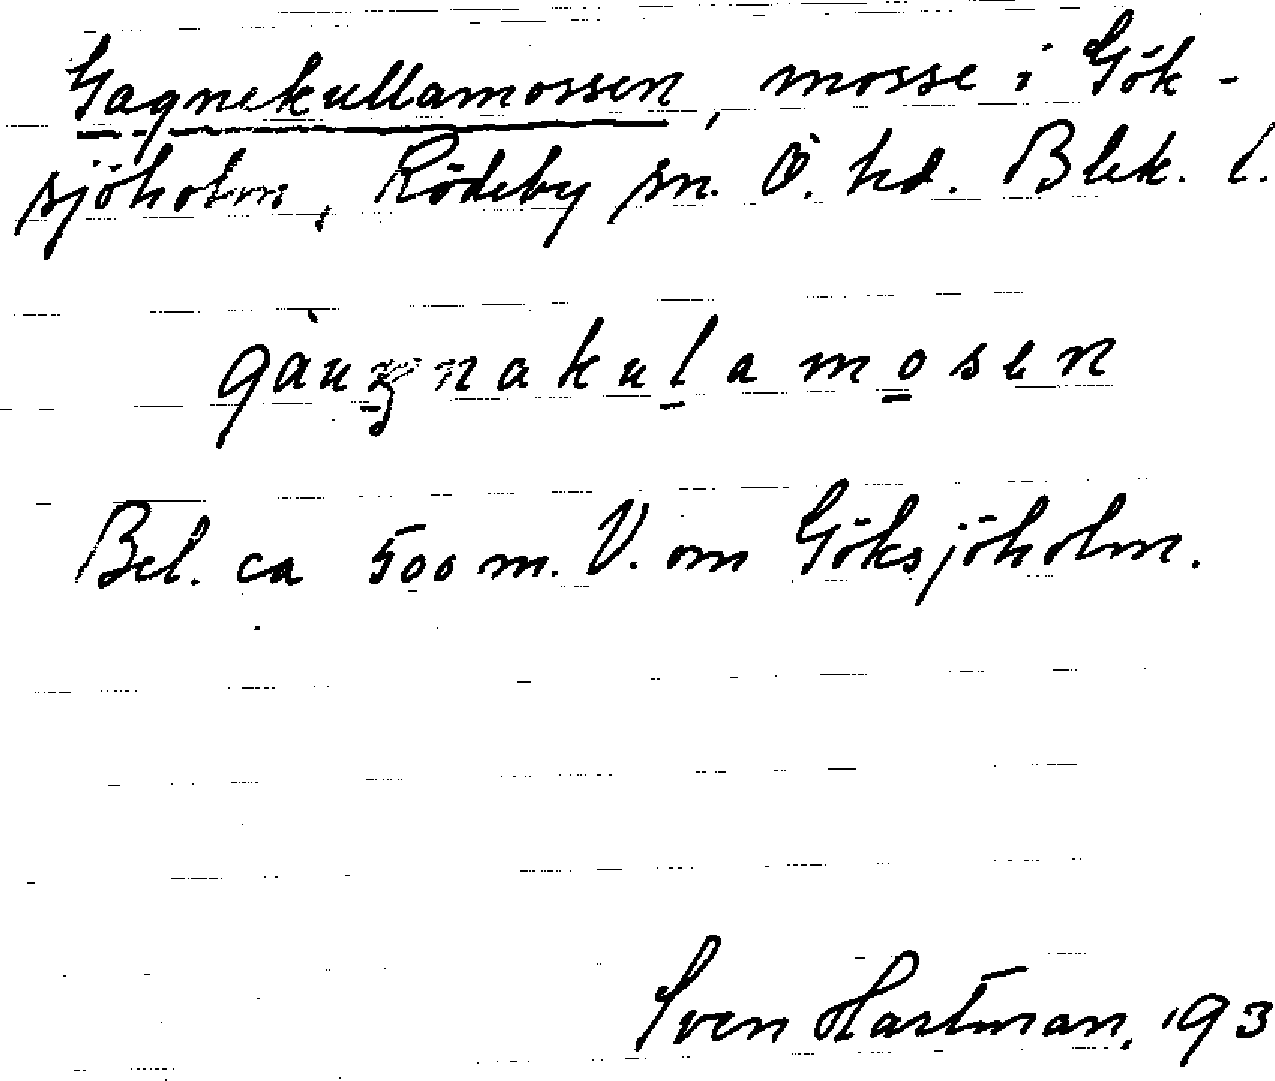 Gagnekullamossen, mosse i Gök-
sjöholm, Rödeby sn. Ö. hd. Blek. l.
gàuŋnakulamosen
Bel. ca 500 m. V. om Göksjöholm.
Sven Hartman, 193